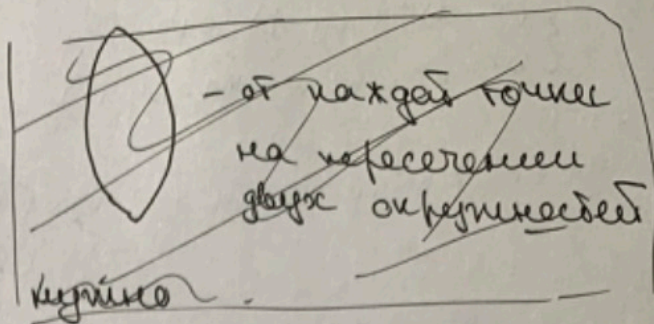 - от каждой точки
на пересечении
двух окружностей
нужно